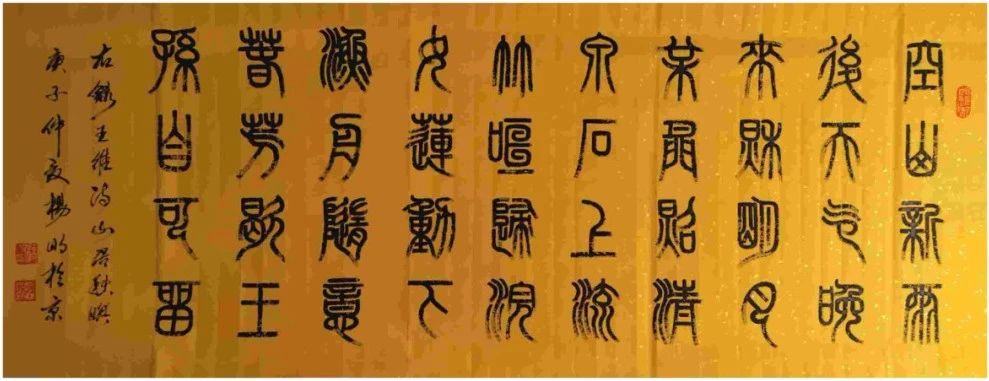 空山新雨
後天气晚
來秋明月
松間照清
泉石上流
竹喧歸浣
女蓮動下
漁舟隨意
春芳歇王
孫自可留
右錄王維詩山居秋暝
庚子仲夏楊明於京